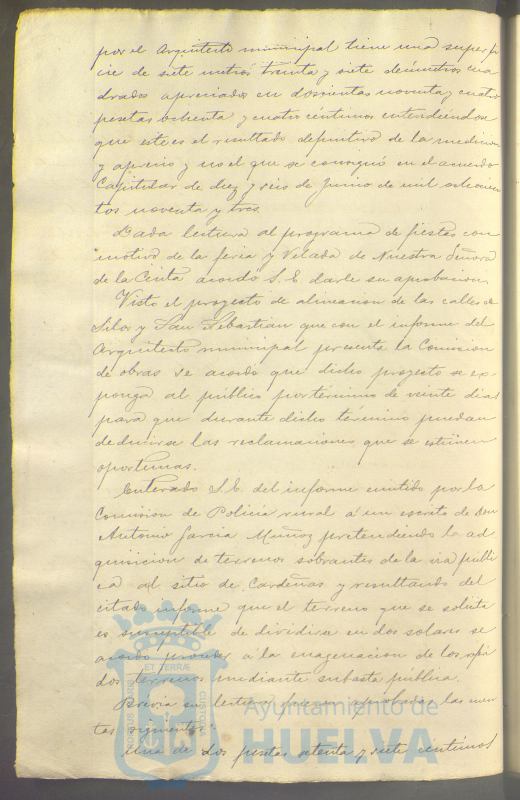 por el Arquitecto municipal tiene una superfi
cie de siete metros treinta y siete decimetros cua
drados apreciados en doscientas noventa y cuatro
pesetas ochenta y cuatro céntimos entendiéndose
que este es el resultado definitivo de la medicion
y aprecio y no el que se consignó en el acuerdo
Capitular de diez y seis de Junio de mil ochocien
tos noventa y tres.
Dada lectura al programa de fiestas con
motivo de la feria y Velada de Nuestra Señora
de la Cinta acordó S. E. darle su aprobacion.
Visto el proyecto de alineacion de las calles de
Silos y San Sebastian que con el informe del
Arquitecto municipal presenta la Comision
de obras se acordó que dicho proyecto se ex
ponga al público por término de veinte dias
para que durante dicho término puedan
deducirse las reclamaciones que se estimen
oportunas.
Enterado S. E. del informe emitido por la
Comision de Policia rural á un escrito de don
Antonio Garcia Muñoz pretendiendo la ad
quisicion de terrenos sobrantes de la via públi
ca al sitio de Cardeñas y resultando del
citado informe que el terreno que se solicita
es susceptible de dividirse en dos solares se
acordó proceder á la enagenacion de los
dos terrenos mediante subasta pública.
Previa su lectura fueron aprobadas las cuen
tas siguientes:
Una de dos pesetas setenta y siete céntimos
ET TERRÆ
PORTUS MARIS
CUSTODIA
Ayuntamiento de
HUELVA